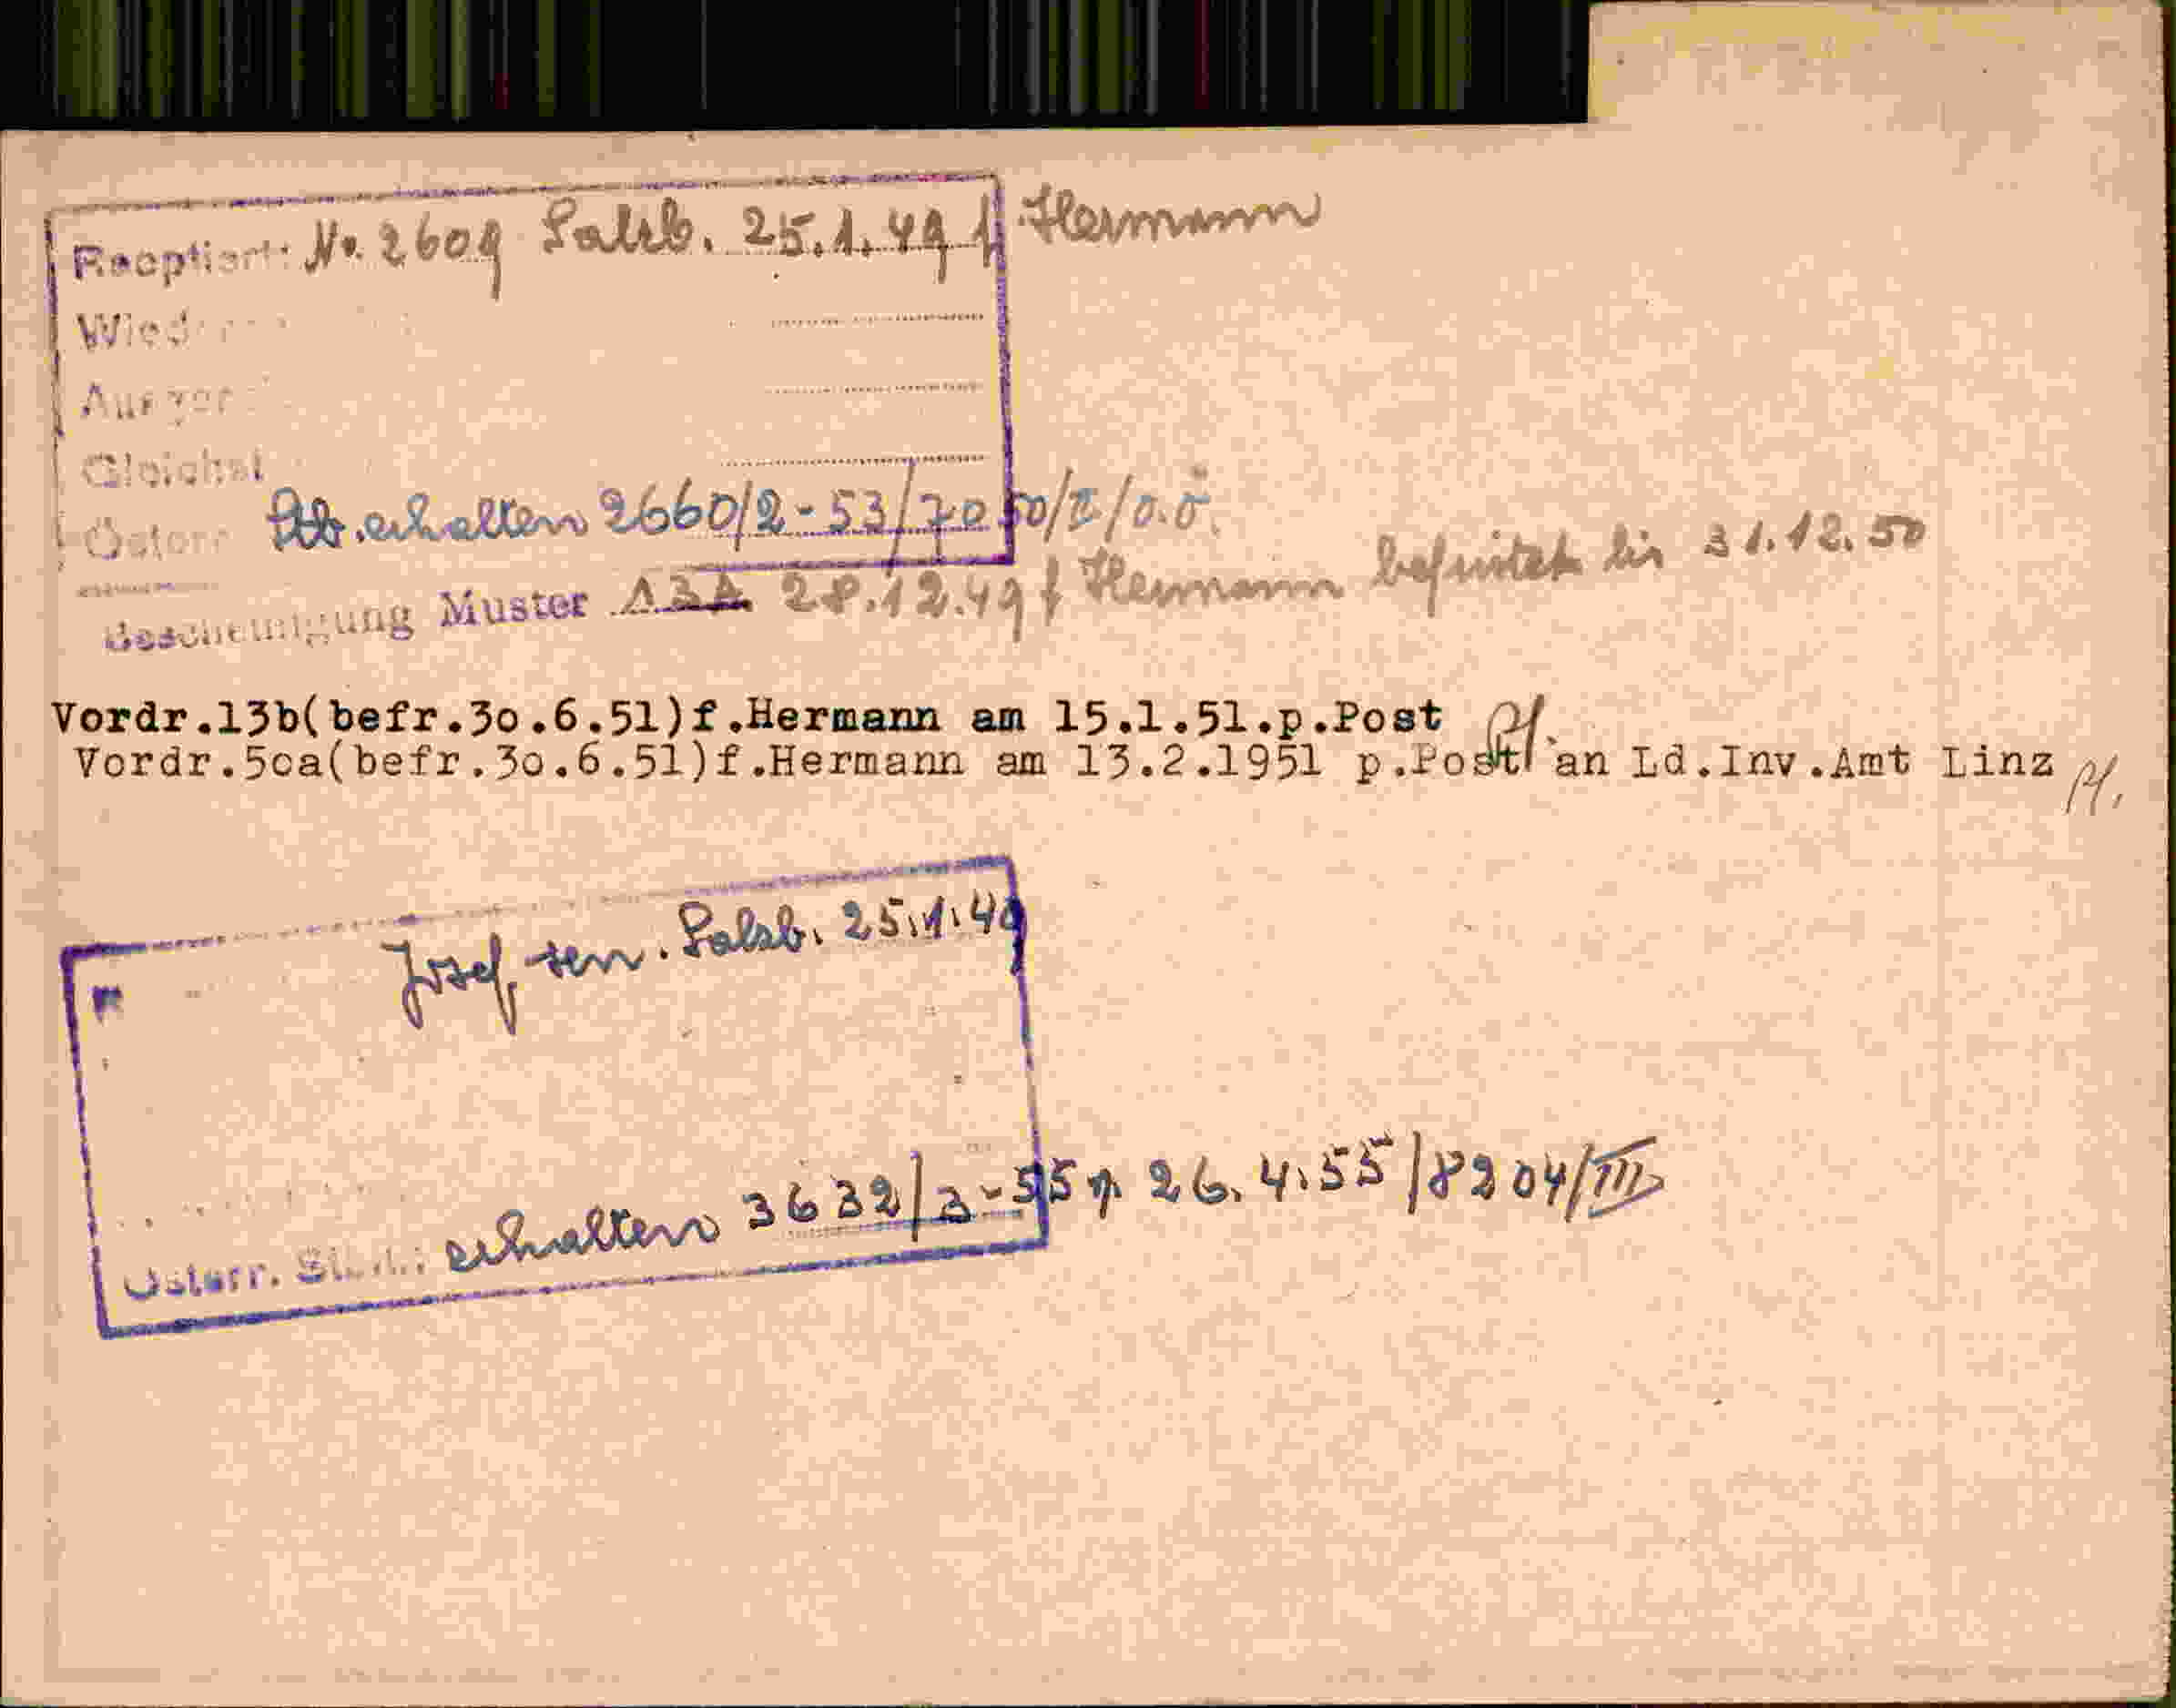 Reoptiert: No. 2609 Salzb. 25.1.49 f. Hermann
Stb. erhalten 2660/2-53/7050/I/O.Ö.
Bescheinigung Muster 13A 28.12.49 f Hermann befristet bis 31.12.50
Vordr.13b(befr.3o.6.51)f.Hermann am 15.1.51.p.Post
Vordr.5oa(befr.3o.6.51)f.Hermann am 13.2.1951 p.Post an Ld.Inv.Amt Linz
Josef sen. Salzb. 25.1.49
Österr. Stb.: erhalten 3632/3-55 v. 26.4.55/8204/III